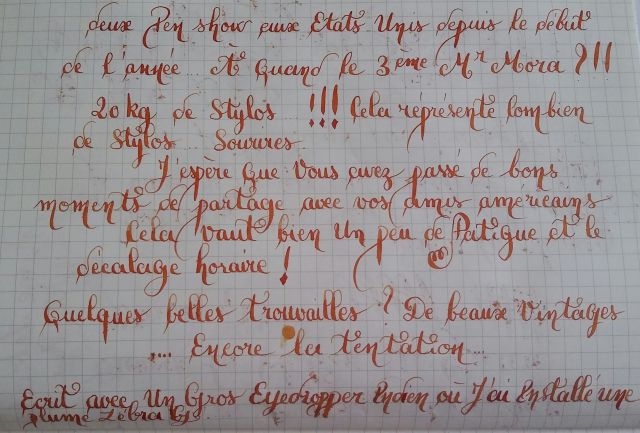 deux Pen show aux Etats Unis depuis le début
de l'année... A Quand le 3ème Mr Mora ? !!!
20 kg de Stylos ... !!! Cela représente Combien
de Stylos... Sourires...
J'espère Que Vous avez passé de bons
moments de partage avec vos amis américains
Cela vaut bien Un peu de Fatigue et le
décalage horaire !
Quelques belles trouvailles ? De beaux Vintages
.... Encore la tentation ...
Ecrit avec Un Gros Eyedropper Indien où J'ai Installé une
plume Zébra G.